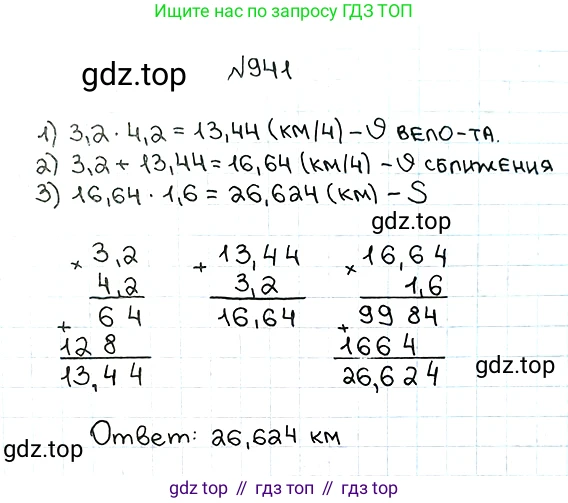 Ищите нас по запросу ГДЗ ТОП
gdz.top
№941
1) 3,2 · 4,2 = 13,44 (км/ч) – υ вело-та.
2) 3,2 + 13,44 = 16,64 (км/ч) – υ сближения
3) 16,64 · 1,6 = 26,624 (км) – S
gdz.top
× 3,2
4,2
+ 6 4
12 8
13,4 4
+ 13,44
3,2
16,64
× 16,6 4
1,6
+ 99 84
166 4
26,6 2 4
gdz.top
Ответ: 26,624 км
gdz.top
gdz.top // гдз.топ // гдз топ